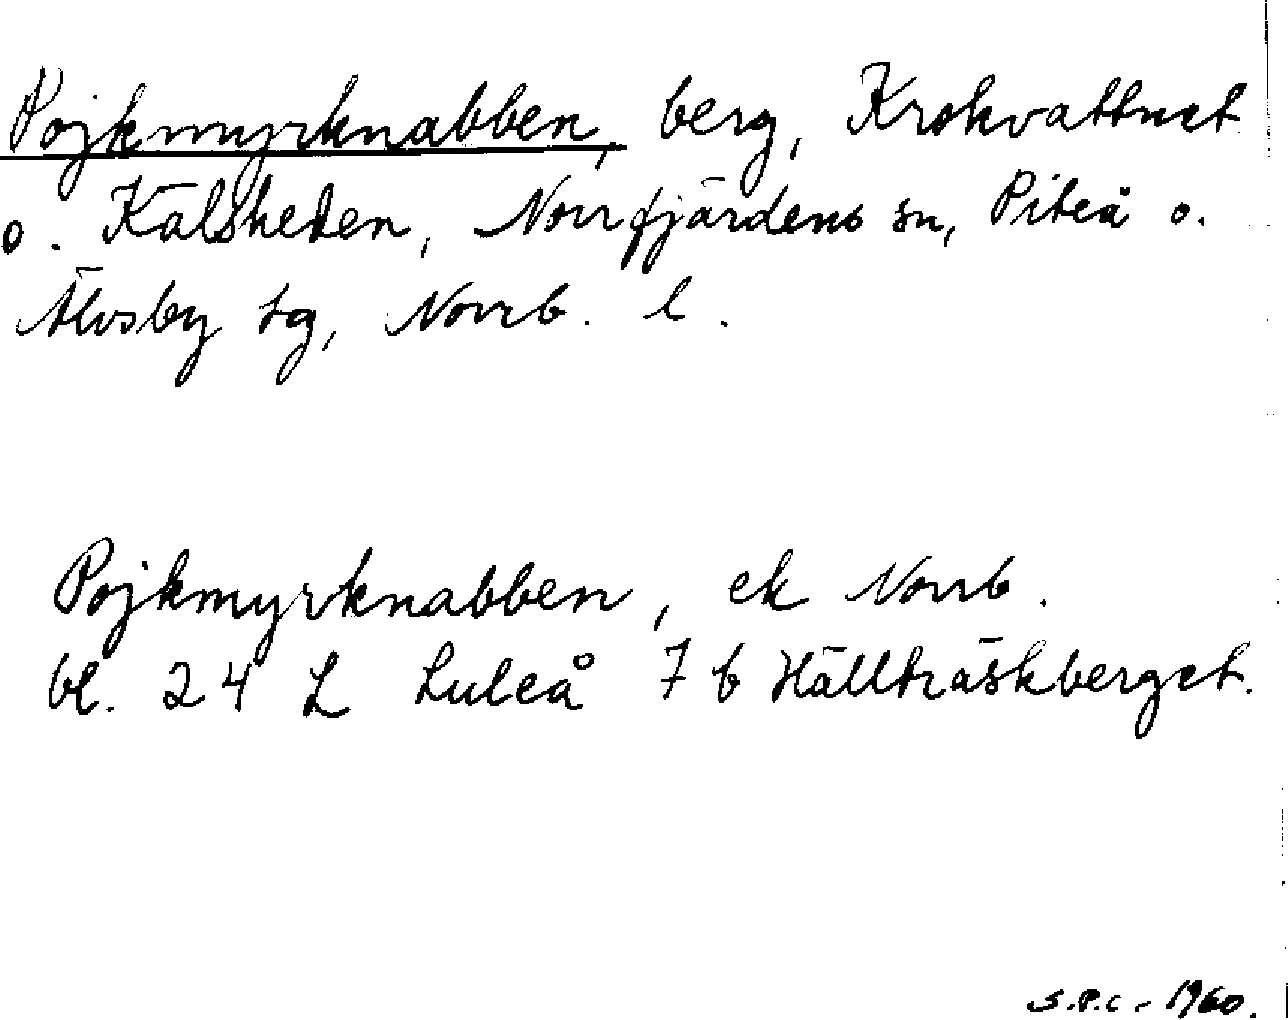 Pojkmyrknabben, berg, Krokvattnet
o. Kälsheden, Norrfjärdens sn, Piteå o.
Älvsby tg, Norrb. l.
Pojkmyrknabben, ek Norrb.
bl. 24 L Luleå 7 b Hällträskberget.
S.P.C - 1960.